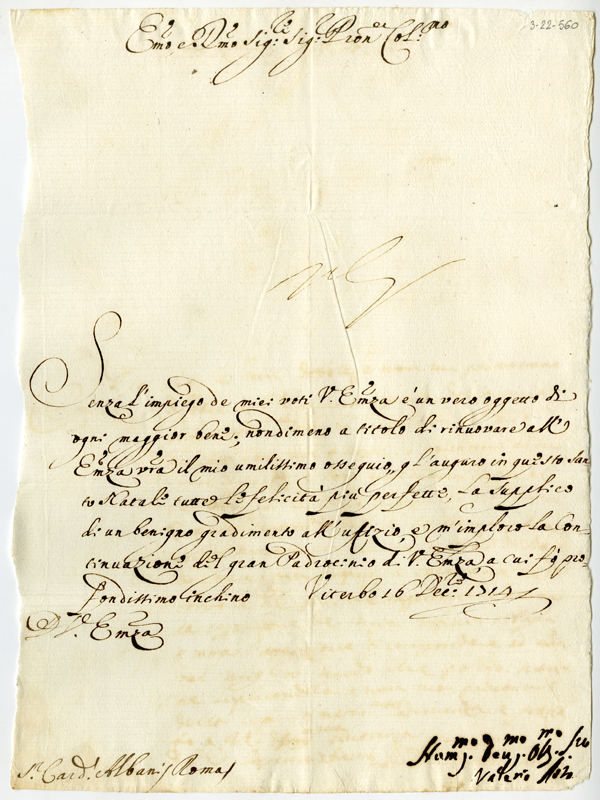 3-22-560
Em̃o e Rm̃o Sig.re Sig.re Pron̄ Col.mo
Senza l'impiego de miei voti V. Em̃za é un vero oggetto di
ogni maggior bene; nondimeno a titolo di rinuovare all'
Em̃za vrã il mio umilissimo ossequio, l'auguro in questo San
to Natale tutte le felicità più perfette, La supplico
di un benigno gradimento all'uffizio, e m'imploro la Con-
tinuazione del gran Padrocinio di V. Em̃za, a cui fò pro-
fondissimo inchino Viterbo 16 Dec.re 1717
D V. Em̃za
Hum.mo Deu.mo Obl.mo Ser
Sr. Card. Albani Roma
Valerio